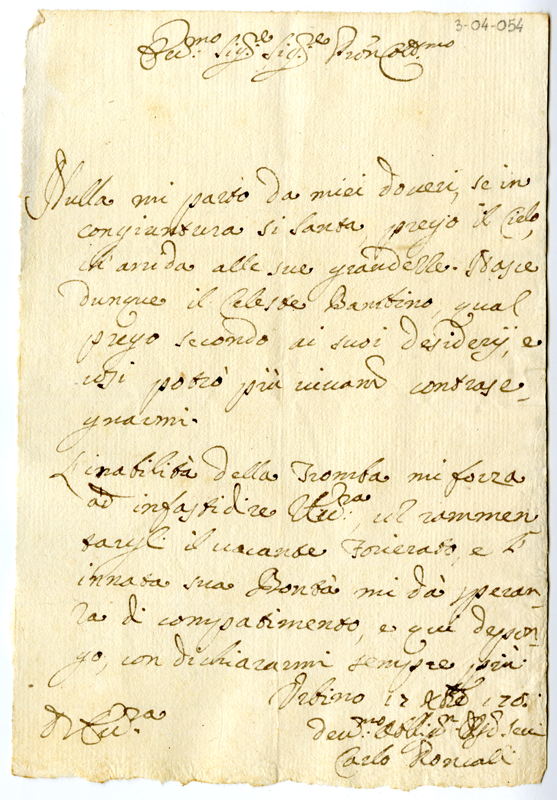 3-04-054
Sig.re Sig.re Pron Col.mo
Nulla mi parto da miei doveri, se in
congiuntura si santa, prego il Cielo,
ch'arrida alle sue grandezze. Nasce
dunque il Celeste Bambino, qual
prego secondo ai suoi desiderij, e
così potrò più vivam. contrase-
gnarmi.
L'inabilità della Tromba mi forza
ad infastidire, col rammen
targli il vacante Forierato, e l'
innata sua Bontà mi dà speran-
za di compatimento, e qui depon-
go, con dichiararmi sempre più
Urbino 17
Di
Carlo Roncalli